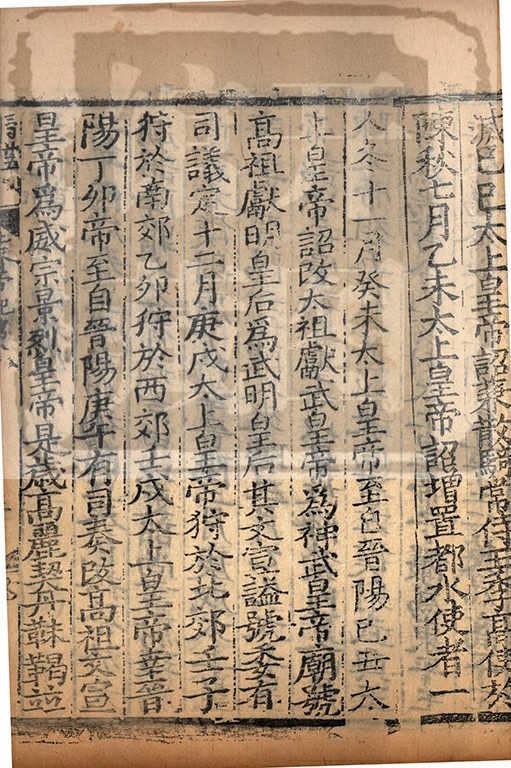 滅己巳太上皇帝詔兼散騎常侍王季高使於
陳秋七月乙未太上皇帝詔增置都水使者一
人冬十一月癸未太上皇帝至自晉陽己丑太
上皇帝詔改太祖獻武皇帝為神武皇帝廟號
高祖獻明皇后為武明皇后其文宣謚號委有
司議定十二月庚戌太上皇帝狩於北郊壬子
狩於南郊乙卯狩於西郊壬戌太上皇帝幸晉
陽丁卯帝至自晉陽庚午有司奏改高祖文宣
皇帝為威宗景烈皇帝是歲高麗契丹靺鞨並